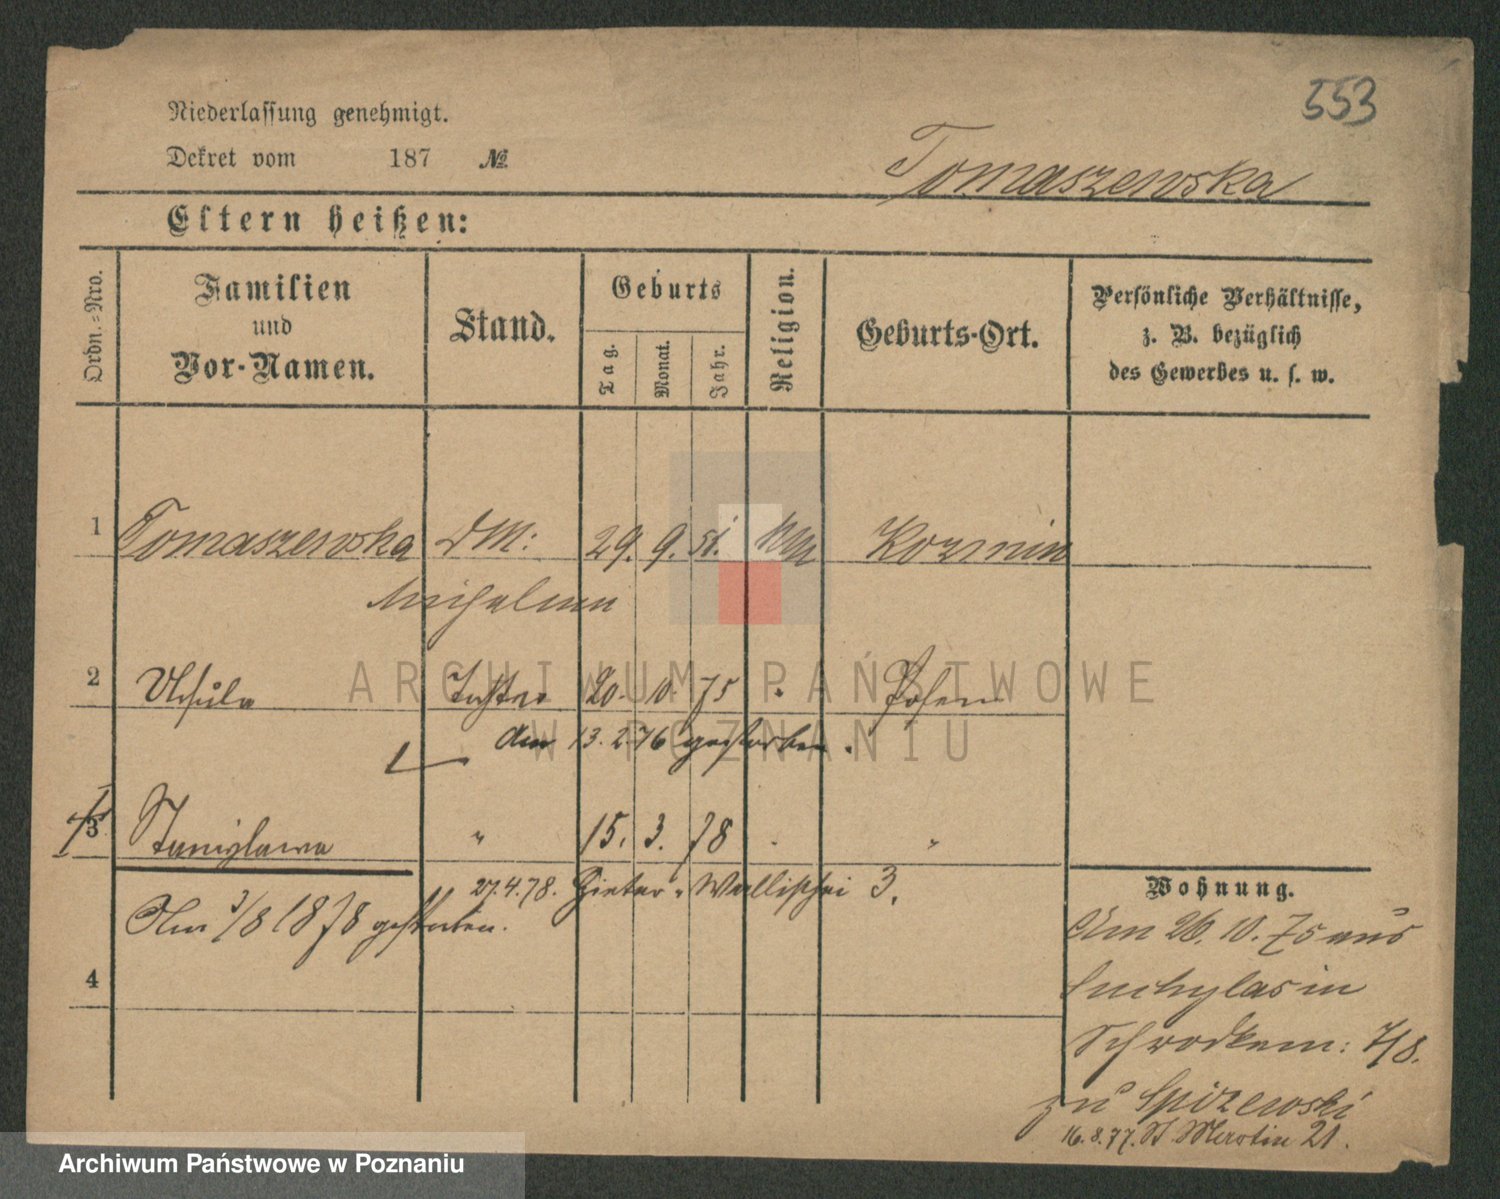 553
Niederlassung genehmigt.
Dekret vom 187 №
Tomaszewska
Eltern heißen:
Ordn.-Nro.
Familien und Vor-Namen.
Stand.
Geburts
Tag.
Monat.
Jahr.
Religion.
Geburts-Ort.
Persönliche Verhältnisse,
z. B. bezüglich
des Gewerbes u. s. w.
1 Tomaszewska DM: 29. 9. 51. Kozmin
2 Ursula Tochter 20. 10. 75 " Posen
den 13. 2. 76 gestorben.
3 Stanislawa " 15. 3. 78 "
27.4.78. Hinter-Wallischei 3.
Am 3/8 1878 gestorben.
4
Wohnung.
Am 26. 10. 75 aus
Schrodkam: 7/8.
zu Spizewski
16.8.77. St. Martin 21.
ARCHIWUM PAŃSTWOWE
W POZNANIU
Archiwum Państwowe w Poznaniu